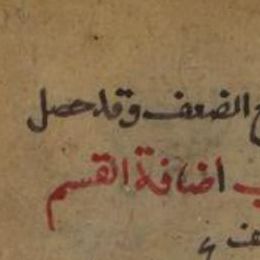 الضعف وقد حصل
اضافة القسم